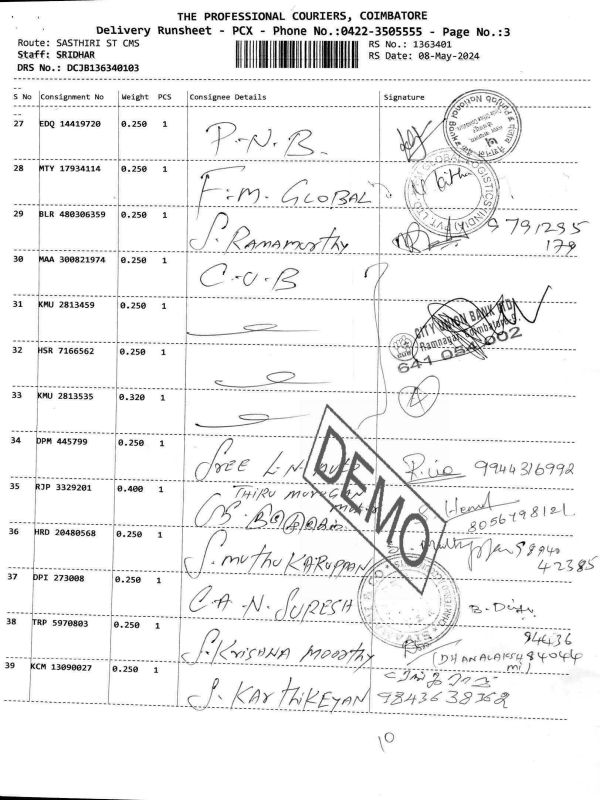 THE PROFESSIONAL COURIERS, COIMBATORE
Delivery Runsheet - PCX - Phone No.:0422-3505555 - Page No.:3
Route: SASTHIRI ST CMS RS No.: 1363401
Staff: SRIDHAR RS Date: 08-May-2024
DRS No.: DCJB136340103
S No Consignment No Weight PCS Consignee Details Signature
27 EDQ 14419720 0.250 1 P.N.B.
28 MTY 17934114 0.250 1 F.M. GLOBAL
29 BLR 480306359 0.250 1 S. RAMAMURTHY 9791295
179
30 MAA 300821974 0.250 1 C.U.B
31 KMU 2813459 0.250 1
CITY UNION BANK LTD
Ramnagar, Coimbatore
641 054 002
32 HSR 7166562 0.250 1
33 KMU 2813535 0.320 1 4
34 DPM 445799 0.250 1 SREE L.N. AUTO 9944316992
35 RJP 3329201 0.400 1 THIRU MURUGAN
8056798121
36 HRD 20480568 0.250 1 S. MUTHU KARUPPAN 98940
42385
DEMO
37 DPI 273008 0.250 1 C.A.N. SURESH
38 TRP 5970803 0.250 1 S. KRISHNA MOORTHY 94436
84044
(DHANALAKSH
mi)
39 KCM 13090027 0.250 1 S. KARTHIKEYAN 9843638362
10